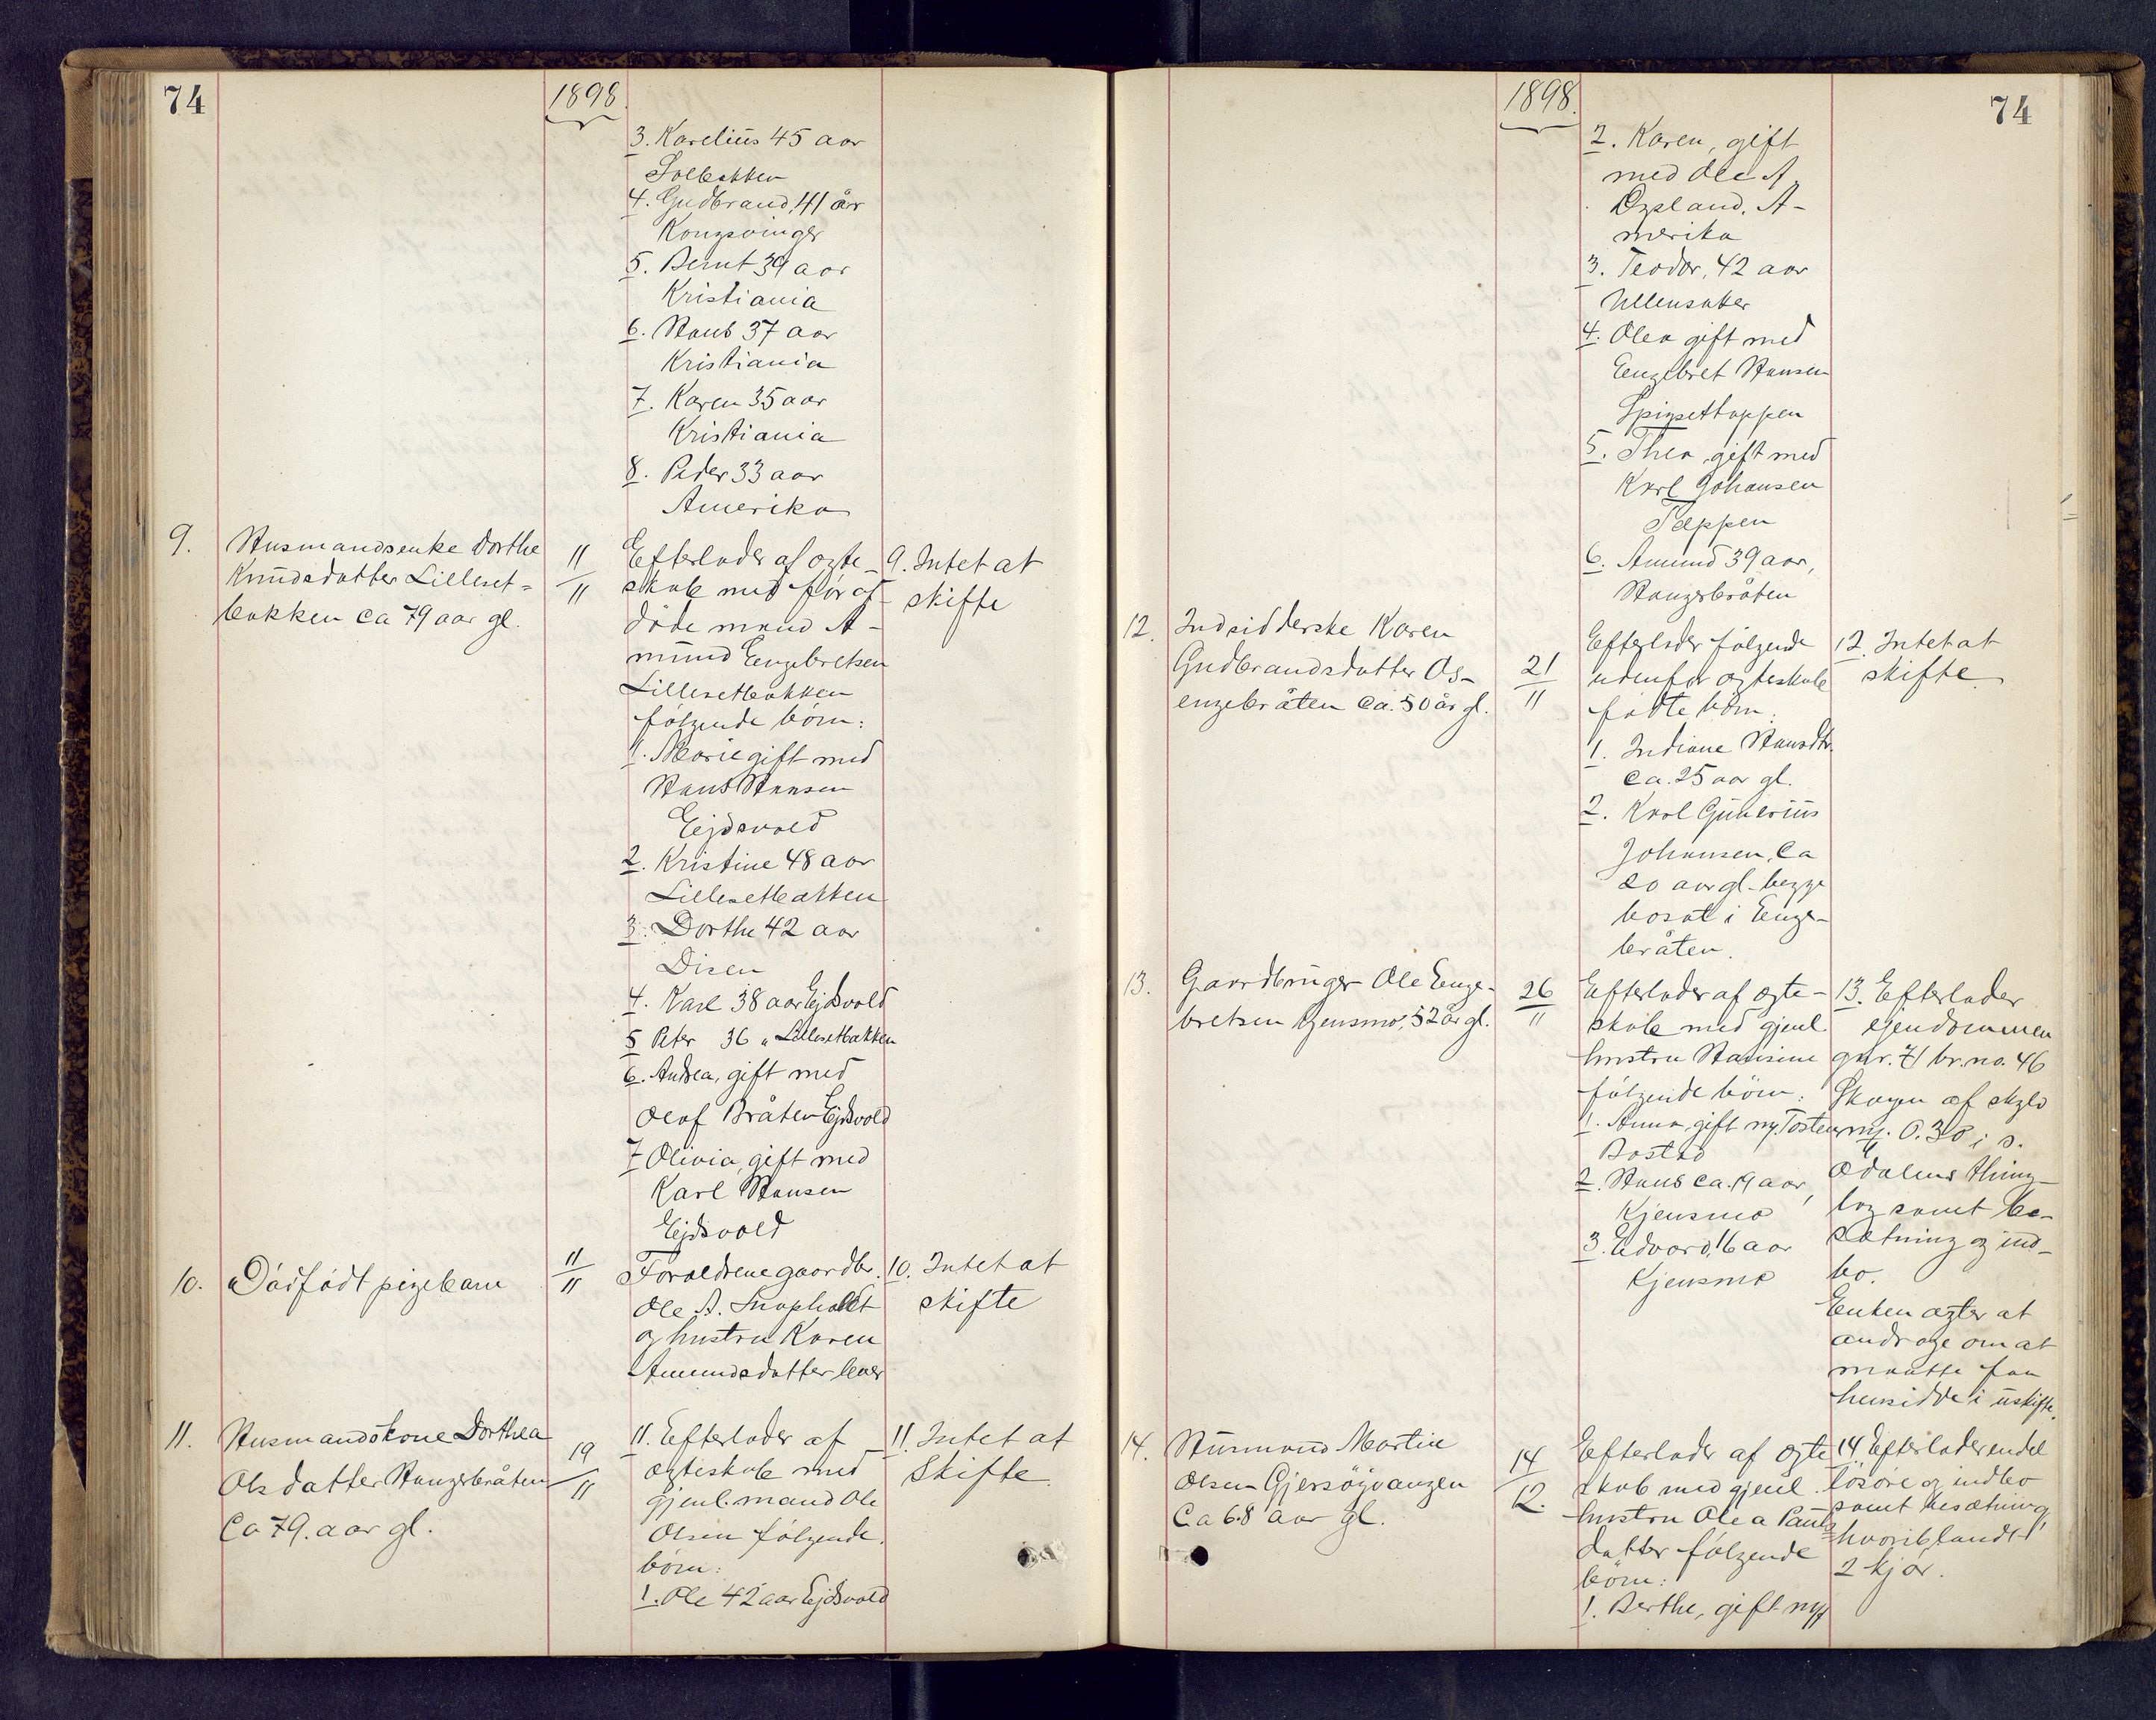 74
1898
3. Karelius 45 aar
Solbakken
4. Gudbrand, 41 år
Kongsvinger
5. Bernt 39 aar
Kristiania
6. Hans 37 aar
Kristiania
7. Karen 35 aar
Kristiania
8. Peder 33 aar
Amerika
9. Husmandsenke Dorthe
Knudsdatter Lilleset-
bakken ca 79 aar gl.
11/11
Efterlader af ægte-
skab med før af-
døde mand A-
mund Engebretsen
Lillesetbakken
følgende børn:
1. Marie gift med
Hans Hansen
Ejdsvold
2. Kristine 48 aar
Lillesetbakken
3. Dorthe 42 aar
Disen
4. Karl 38 aar Ejdsvold
5 Peter 36 " Lillesetbakken
6. Andrea, gift med
Olaf Bråten Ejdsvold
7 Olivia, gift med
Karl Hansen
Ejdsvold
9. Intet at
skifte
10. Dødfødt pigebarn
11/11
Forældrene gaardbr.
Ole A. Knapholdt
og hustru Karen
Amundsdatter lever
10. Intet at
skifte
11. Husmandskone Dorthea
Olsdatter Hangerbråten
Ca 79. aar gl.
19/11
11. Efterlader af
ægteskab med
gjenl. mand Ole
Olsen følgende
børn:
1. Ole 42 aar Ejdsvold
11. Intet at
Skifte
74
1898.
2. Karen, gift
med Ole A.
Opsland, A-
merika
3. Teodor, 42 aar
Ullensaker
4. Olea gift med
Engebret Hansen
Spigsettoppen
5. Thea, gift med
Karl Johansen
Tæppen
6. Amund 39 aar,
Hangerbråten
12. Indsidderske Karen
Gudbrandsdatter Os-
engebråten ca. 50 år gl.
21/11
Efterlader følgende
udenfor ægteskab
fødte børn:
1. Indiane Hansdtr.
ca. 25 aar gl.
2. Karl Gunerius
Johansen, ca
20 aar gl. begge
bosat i Enge-
bråten.
12. Intet at
skifte
13. Gaardbruger Ole Enge-
bretsen Kjensmo, 52 år gl.
26/11
Efterlader af ægte-
skab med gjenl.
hustru Hansine
følgende børn:
1. Anna, gift m. Tosten
Bostad
2. Hans ca. 19 aar,
Kjensmo
3. Edvard, 16 aar
Kjensmo
13. Efterlader
ejendommen
gnr. 71 br. no. 46
Skogen af skyld
mk. 0.38 i s.
Odalens thing-
lag samt be-
sætning og ind-
bo.
Enken agter at
andrage om at
maatte faa
hensidde i uskifte.
14. Husmand Martin
Olsen Gjersøgvangen
Ca 68 aar gl.
14/12.
Efterlader af ægte
skab med gjenl.
hustru Olea Pauls-
datter følgende
børn:
1. Berthe, gift m
14. Efterlader endel
løsøre og indbo
samt besætning
hvoriblandt
2 kjør.